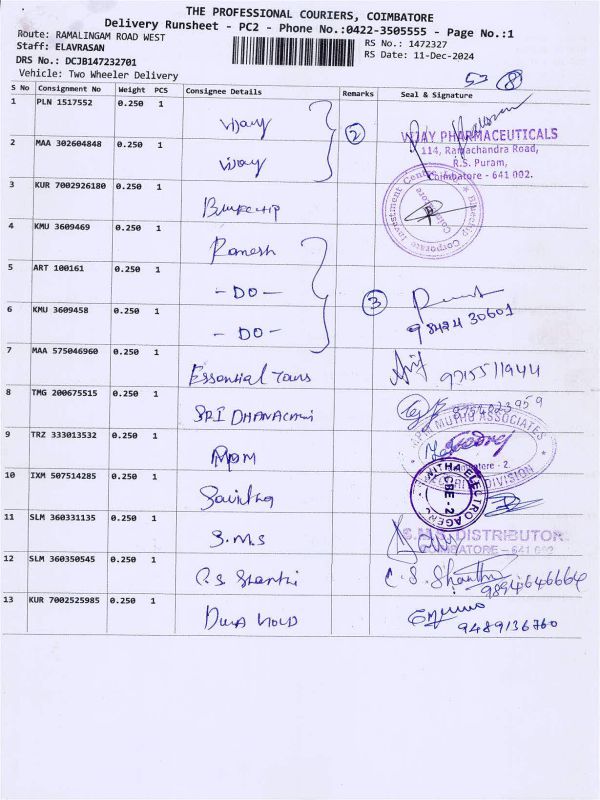 THE PROFESSIONAL COURIERS, COIMBATORE
Delivery Runsheet - PC2 - Phone No.:0422-3505555 - Page No.:1
Route: RAMALINGAM ROAD WEST
Staff: ELAVRASAN
RS No.: 1472327
DRS No.: DCJB147232701
RS Date: 11-Dec-2024
Vehicle: Two Wheeler Delivery
53 8
S No Consignment No Weight PCS Consignee Details Remarks Seal & Signature
1 PLN 1517552 0.250 1 Vijay
2
VIJAY PHARMACEUTICALS
114, Ramachandra Road,
R.S. Puram,
Coimbatore - 641 002.
2 MAA 302604848 0.250 1 Vijay
3 KUR 7002926180 0.250 1 Bluechip
Bluechip Corporate Investment Centre
Coimbatore
4 KMU 3609469 0.250 1 Ramesh
5 ART 100161 0.250 1 - DO -
3
98424 30601
6 KMU 3609458 0.250 1 - DO -
7 MAA 575046960 0.250 1 Essential Tours
9715511944
8 TMG 200675515 0.250 1 SRI DHANALAXMI
MUTHU ASSOCIATES
Godrej
SECURITY DIVISION
9 TRZ 333013532 0.250 1
10 IXM 507514285 0.250 1 Savitha
ELECTRO AGENC
CBE - 2
11 SLM 360331135 0.250 1 S.M.S
S.M.S. DISTRIBUTOR
COIMBATORE - 641 002
12 SLM 360350545 0.250 1 C.S Shanthi
C. S. Shanthi
9894646664
13 KUR 7002525985 0.250 1
9489136760